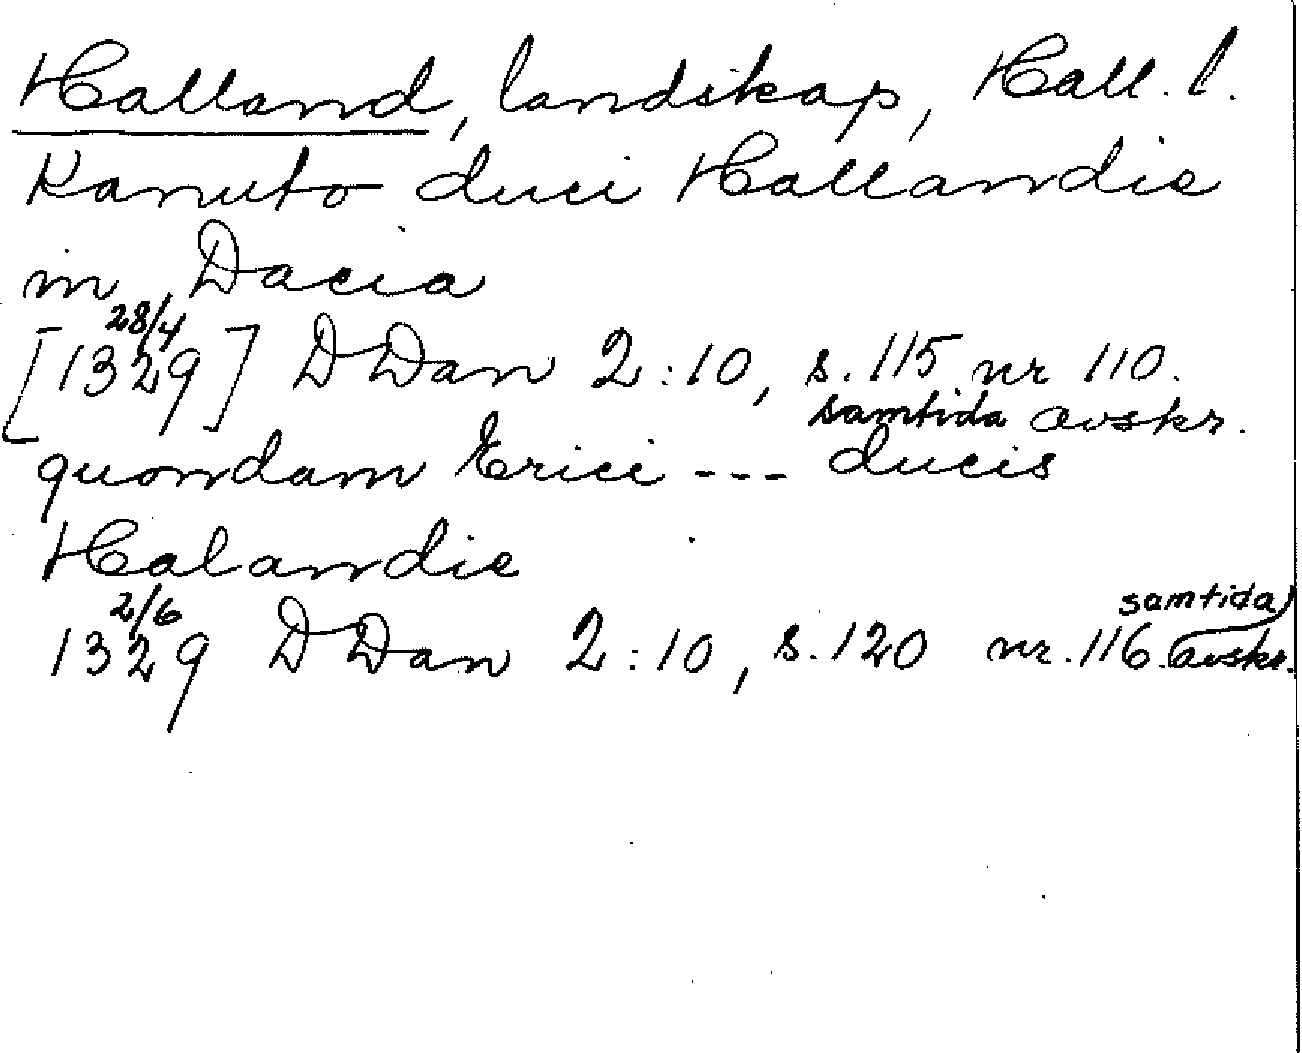 Halland, landskap, Hall. l.
Kanuto duci Hallandie
in Dacia
28/4
[1329] DDan 2:10, s. 115 nr 110.
samtida avskr.
quondam Erici --- ducis
Halandie
2/6 samtida
1329 DDan 2:10, s. 120 nr. 116. avskr.